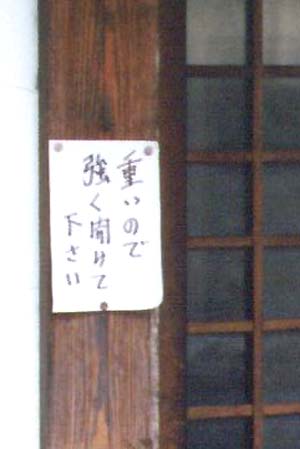 重いので
強く開けて
下さい